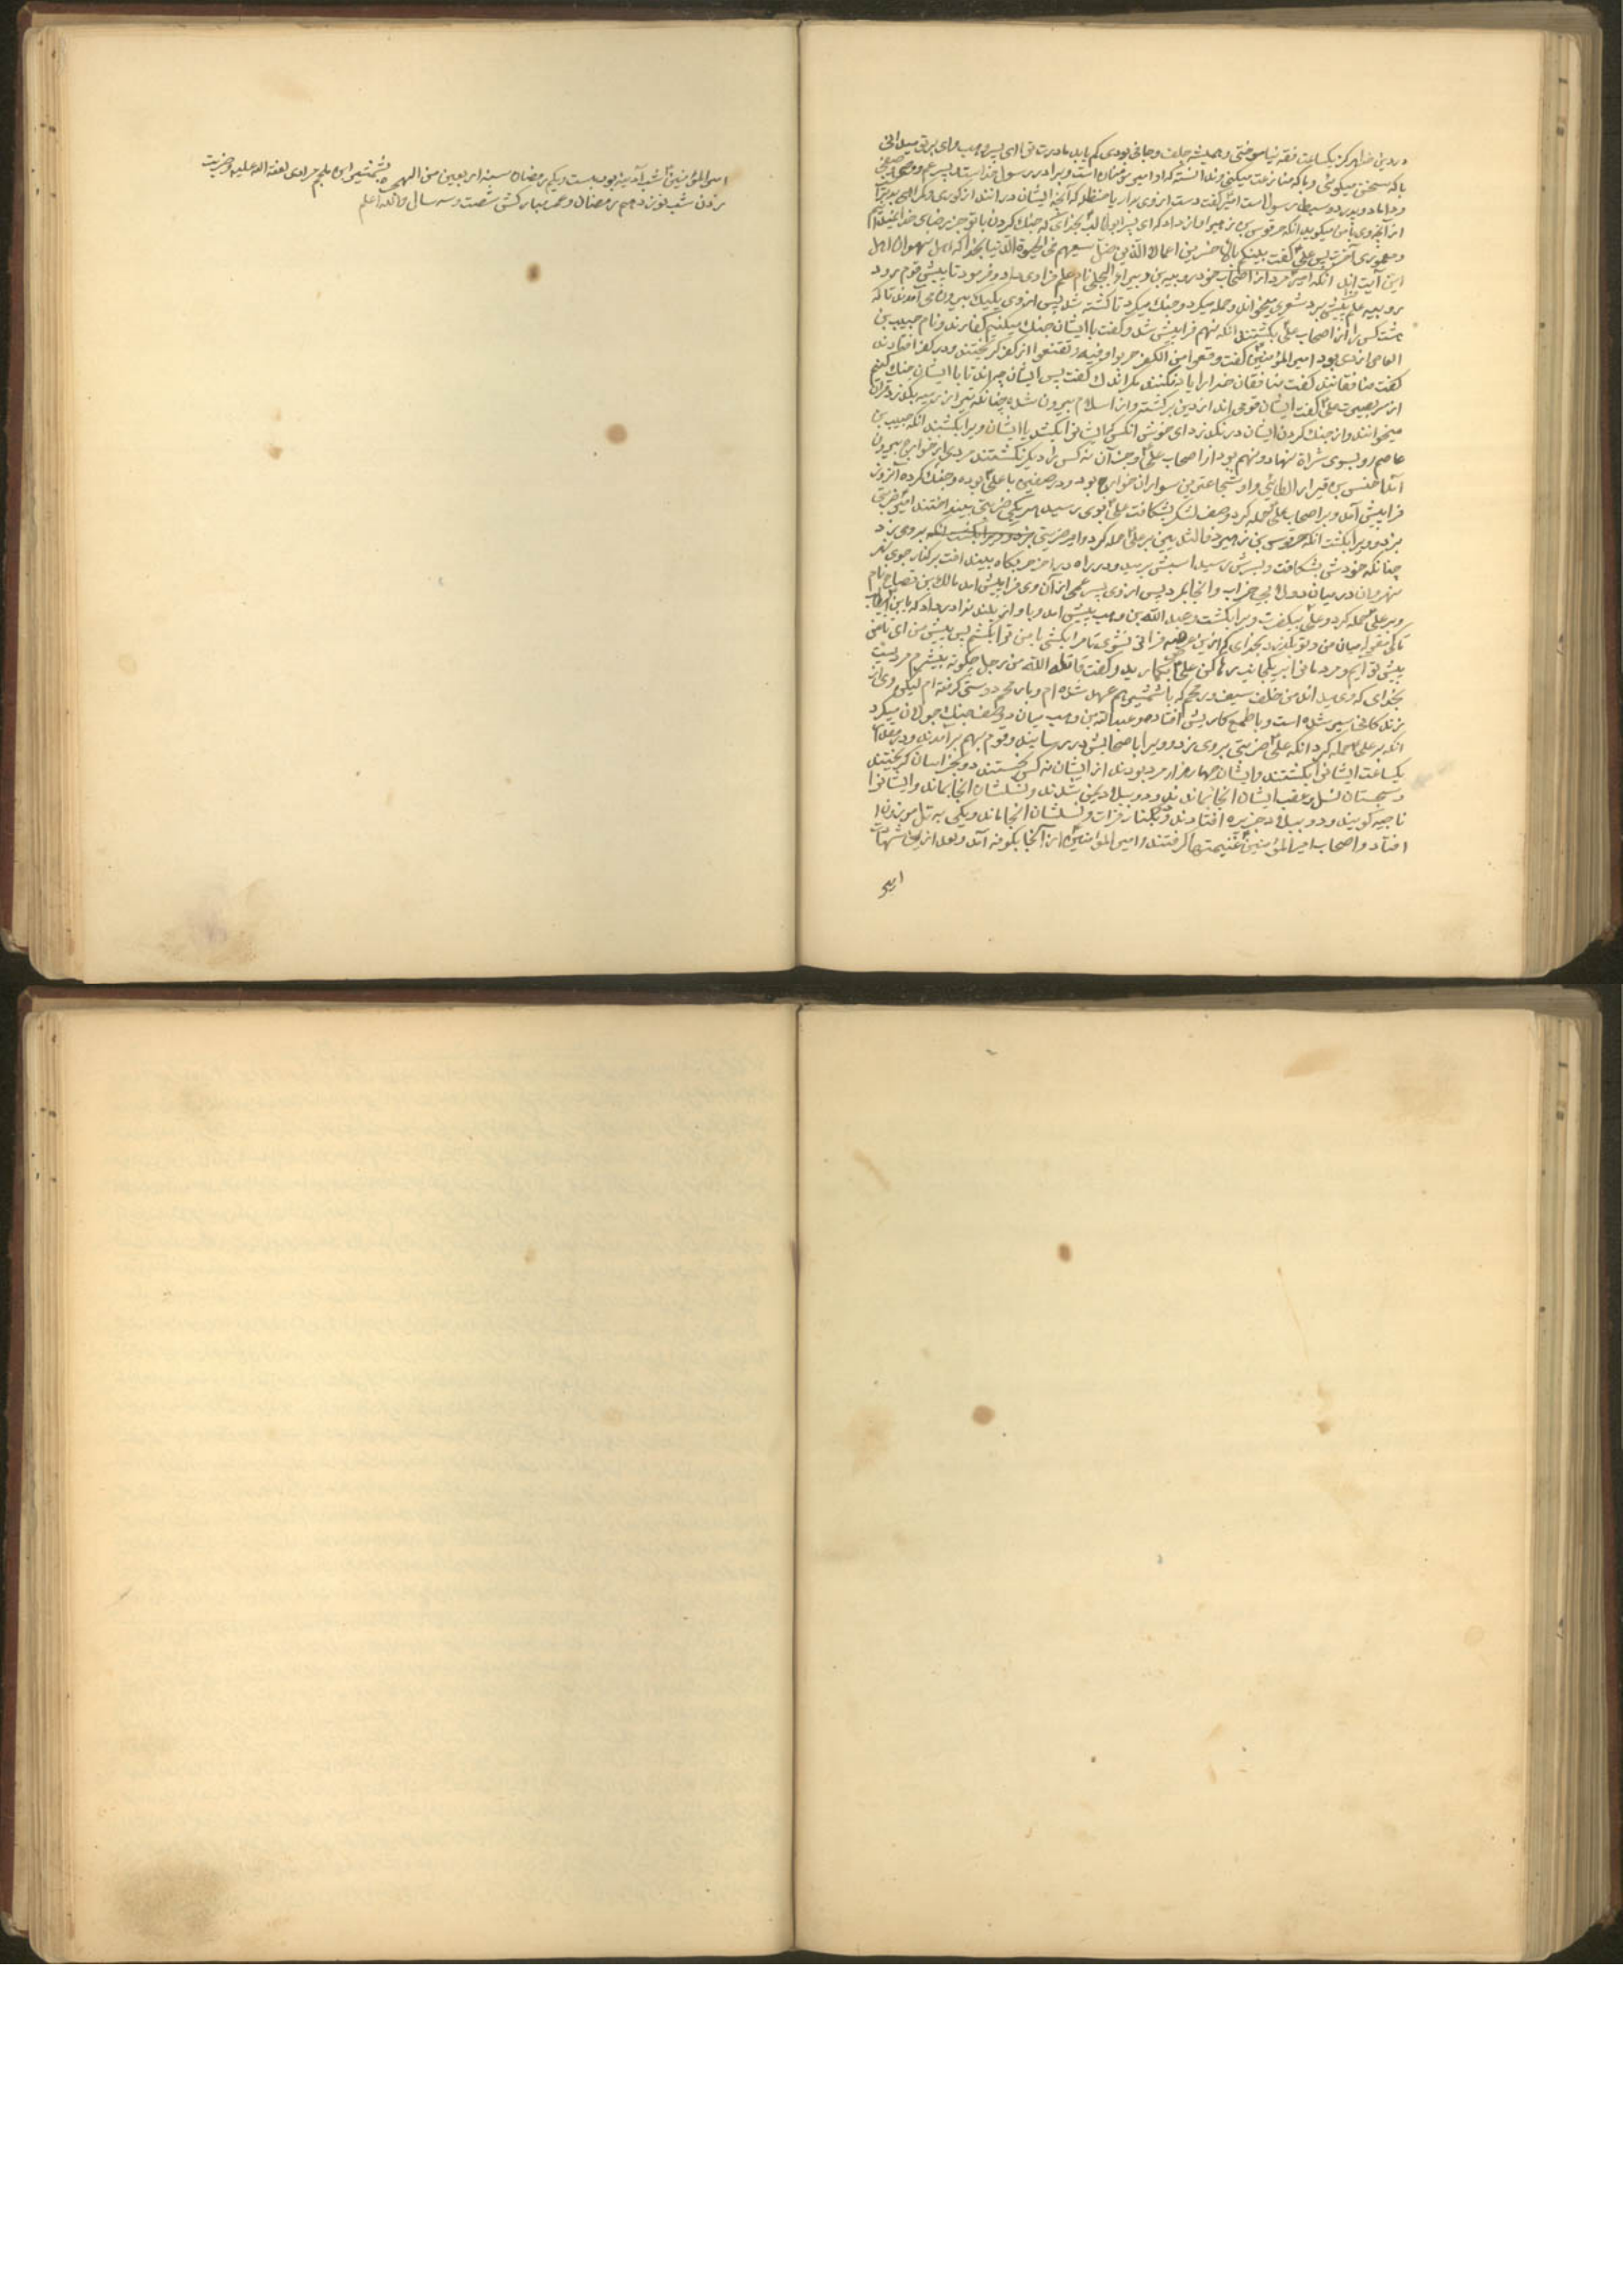 در دین خدا هرگز یکساعت فقه نیاموختی و همیشه جلف و جافی بودی کم یابد مادرت ترا ای پسر وهب وای بر تو میدانی
با که سخن میگوئی و با که منازعت میکنی
و داماد و پدر دو سبط رسول است امیر گفت دست از وی بدار یا حنظله که آنچه ایشان در انند از کوری و گمراهی
از آنچه وی با من میگوید انکه حرقوص بن زهیر اواز داد که ای پسر ابوطالب بخدای که جنگ کردن با تو جز رضای خدا نمیخواهیم
پس علی گفت بالاخسرین اعمالا الذین ضل سعیهم فی الحیوة الدنیا بخدا که اهل نهروان اهل
این آیت اند انکه امیر مرد از اصحاب خود نام علم فرا وی داد و فرمود تا پیش قوم رود
علم پیش برد شعری میخواند و حمله میکرد و جنگ میکرد تا کشته شد پس از وی یکیک بیرون می آمدند تا که
هشت کس را از اصحاب علی بکشتند انکه نهم فرا پیش شد و گفت با ایشان جنگ میکنیم کفارند و نام حبیب بن
العاصم ازدی بود امیر المؤمنین گفت من الکفر هربوا وفیه وقعوا از کفر گریختند و در کفر افتادند
گفت منافقانند گفت منافقان خدا را یاد نکنند مگر اندک گفت پس ایشان چه اند تا با ایشان جنگ کنیم
از سر بصیرت علی گفت ایشان قومی اند از دین برگشته و از اسلام بیرون شده چنانکه تیر از رمیه بگذرد قران
میخوانند و از چنبر گردن ایشان در نگذرد ای خوش انکس که ایشانرا بکشد یا ایشان ویرا بکشند انکه حبیب بن
عاصم رو بسوی شراة نهاد و نهم بود از اصحاب علی و جز آن نه کس را دیگر نکشتند مردی از خوارج بیرون
آمد الطائی و او شجاعترین سواران خوارج بود و در صفین با علی بوده و جنگ کرده آنروز
فرا پیش آمد و بر اصحاب علی حمله کرد و صف لشکر بشکافت علی بوی رسید هر یکی ضربتی بینداختند امیر ضربتی
بزد و ویرا بکشت انکه حرقوص بن زهیر بر علی حمله کرد و امیر ضربتی بروی زد
چنانکه خودش بشکافت و بسرش رسید اسبش برمید و در راه در اخر حربگاه بیفتد افت بر کنار جوی نهر
نهروان در میان دولابی خراب و انجا بمرد پس از وی پسر عمی از آن وی فرا پیش امد مالک بن نام
و بر علی حمله کرد و علی ویرا بکشت و عبد الله بن وهب پیش امد و باواز بلند ندا در داد که یا بن ابیطالب
تا کی
پیش تو آیم و مرد مانرا بر یک جانب رها کن علی بخندید و گفت قاتله الله من رجل چگونه بیشرم مردیست
بخدای که وی میداند من خلف سیف و رمحم که با شمشیر هم عهد شده ام و با رمح دوستی گرفته ام لیکن وی از
زندگانی سیر شده است و یا طمع کاریش افتاده و عبد الله بن وهب میان دو صف جنگ جولان میکرد
انکه بر علی حمله کرد انکه علی ضربتی بروی زد و ویرا با اصحابش در رسانید و قوم بهم برآمدند و در مقدار
یکساعت ایشانرا بکشتند و ایشان چهار هزار مرد بودند از ایشان نه کس بجستند دو بخراسان گریختند
و سجستان نسل و عقب ایشان انجا بماندند و دو ببلاد یمن شدند و نسلشان انجا بماند و ایشانرا
ناجیه گویند و دو ببلاد جزیره افتادند و بکنار فرات و نسلشان انجا ماند و یکی به تل موزون
افتاد و اصحاب امیر المؤمنین غنیمتها گرفتند و امیر المؤمنین از آنجا بکوفه آمد و بعد از این شهادت
امیر
امیر المؤمنین شب آدینه بود بیست و یکم رمضان سنه اربعین من الهجره بشمشیر ابن ملجم مرادی لعنة الله علیه و ضربت
زدن شب نوزدهم رمضان و عمر مبارکش شصت و سه سال و الله اعلم